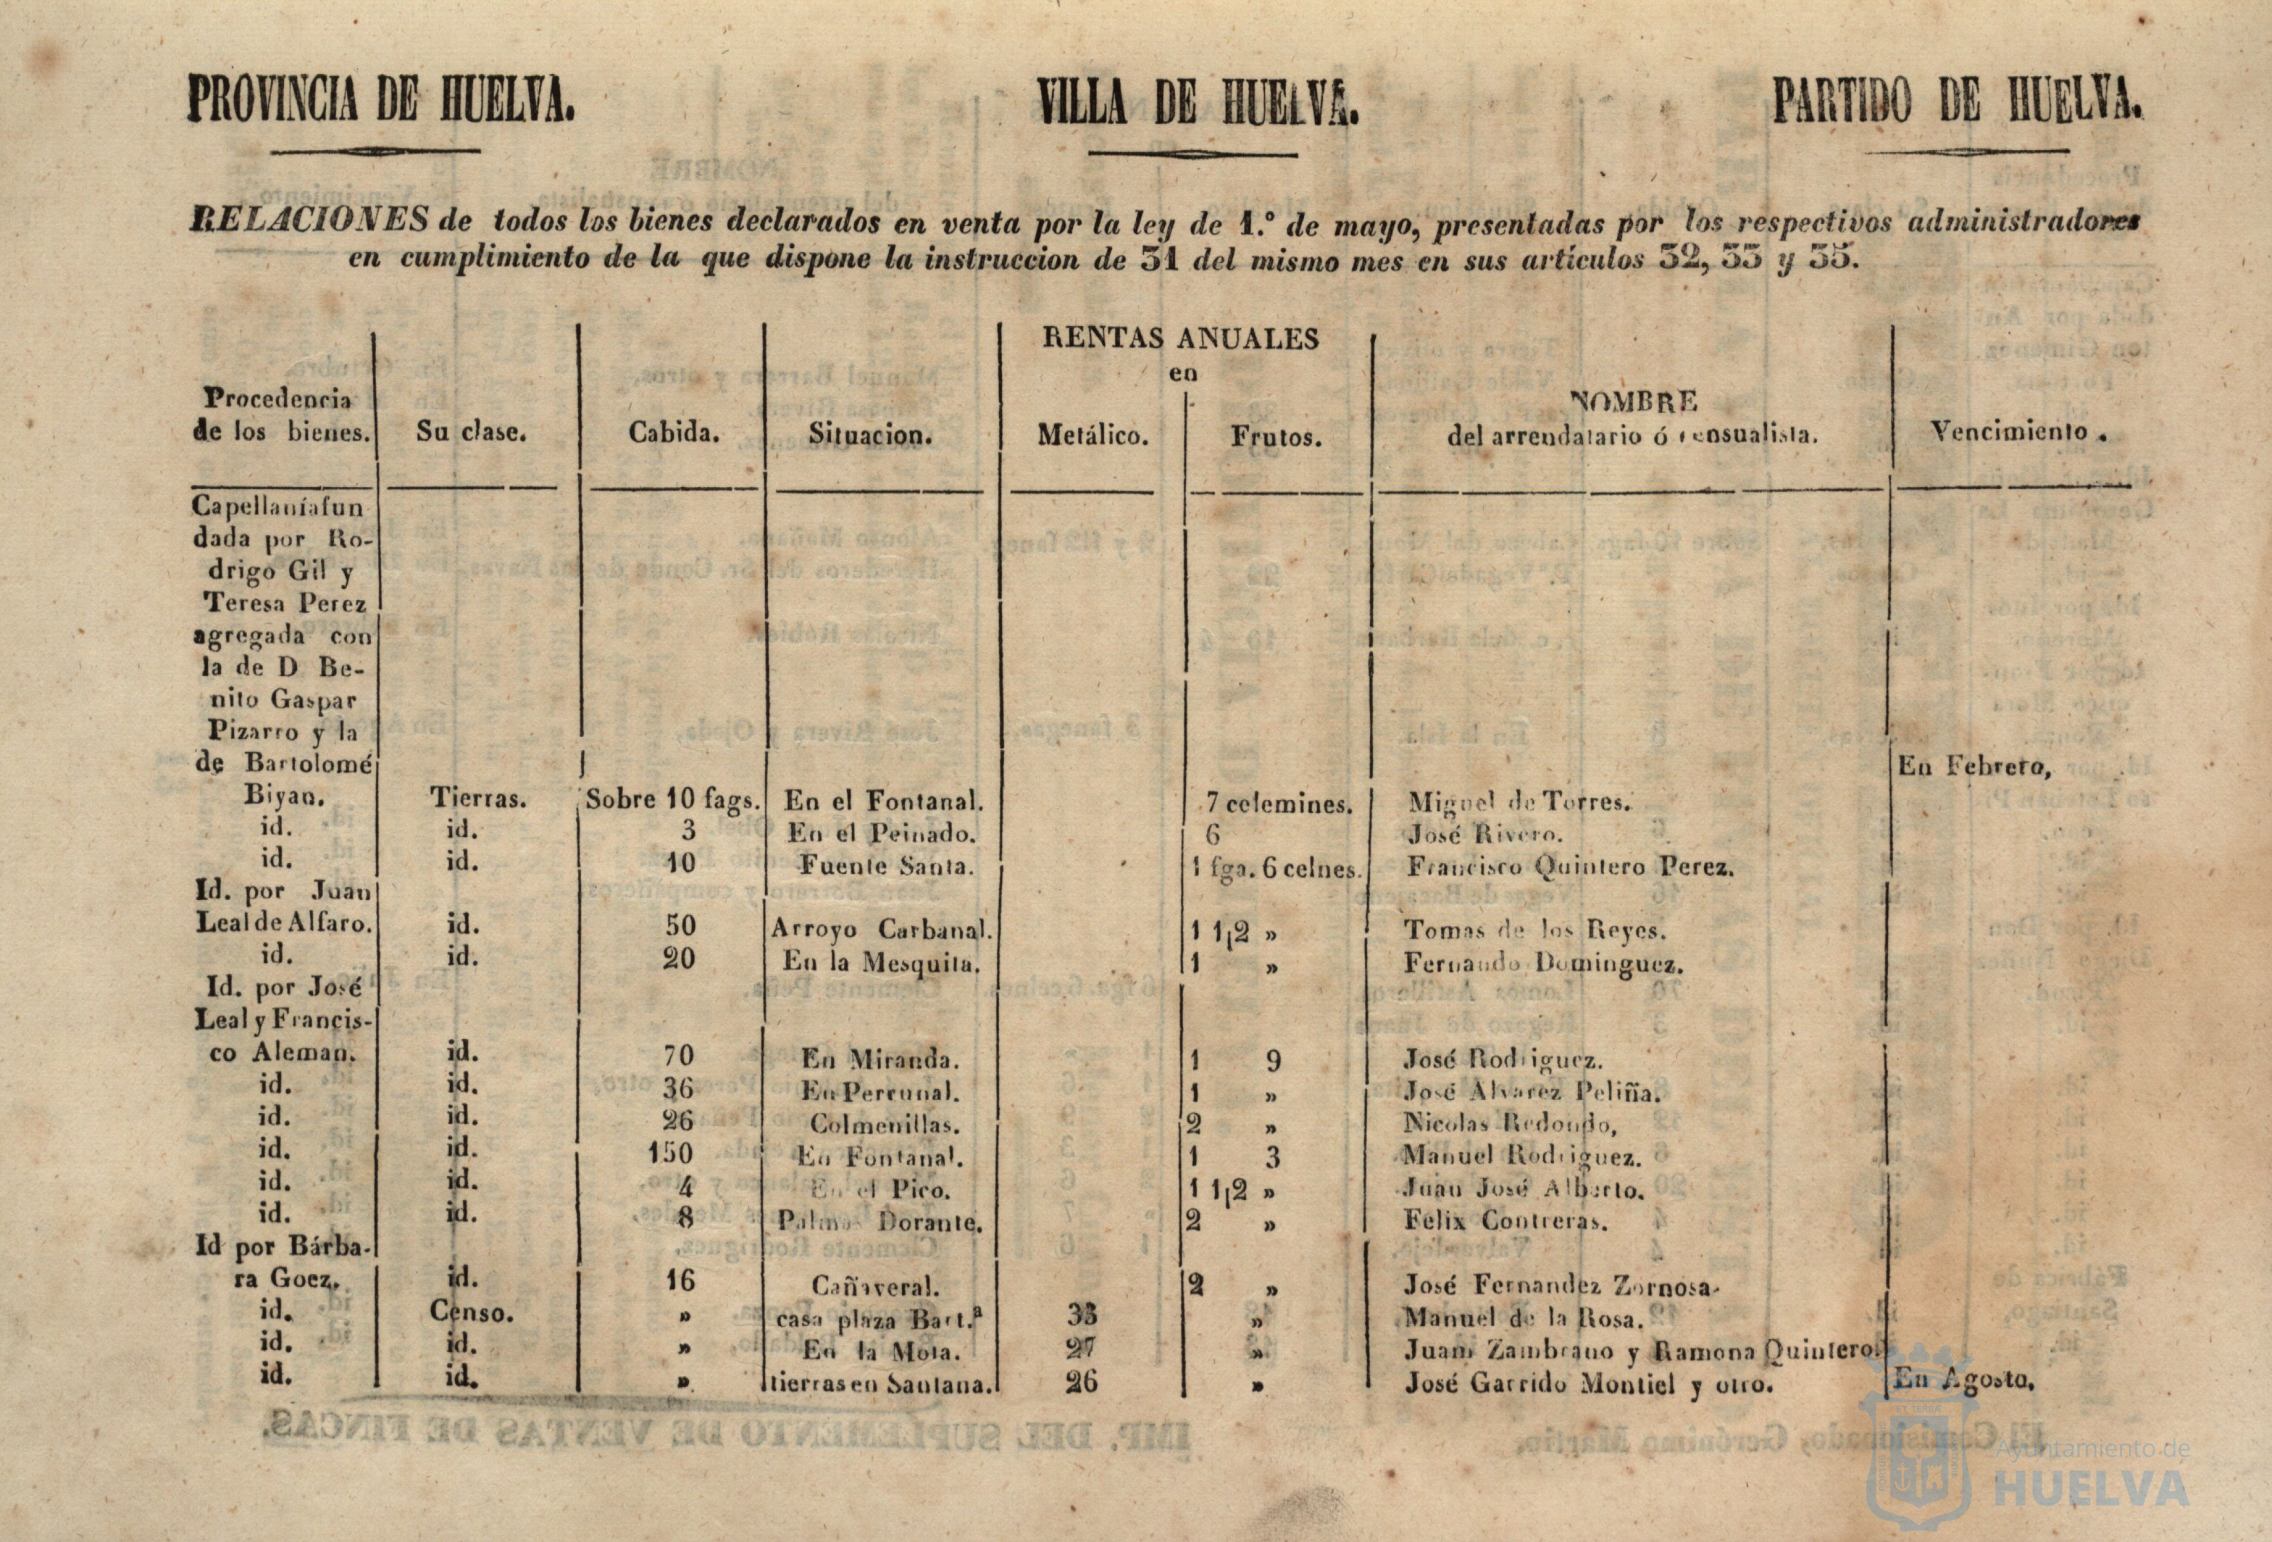 PROVINCIA DE HUELVA. VILLA DE HUELVA. PARTIDO DE HUELVA.
RELACIONES de todos los bienes declarados en venta por la ley de 1.º de mayo, presentadas por los respectivos administradores
en cumplimiento de la que dispone la instruccion de 31 del mismo mes en sus artículos 32, 33 y 35.
RENTAS ANUALES
en
Procedencia NOMBRE
de los bienes. Su clase. Cabida. Situacion. Metálico. Frutos. del arrendatario ó censualista. Vencimiento.
Capellaníafun
dada por Ro-
drigo Gil y
Teresa Perez
agregada con
la de D Be-
nito Gaspar
Pizarro y la
de Bartolomé En Febrero,
Biyan. Tierras. Sobre 10 fags. En el Fontanal. 7 celemines. Miguel de Torres.
id. id. 3 En el Peinado. 6 José Rivero.
id. id. 10 Fuente Santa. 1 fga. 6 celnes. Francisco Quintero Perez.
Id. por Juan
Leal de Alfaro. id. 50 Arroyo Carbanal. 1 1,2 » Tomas de los Reyes.
id. id. 20 En la Mesquita. 1 » Fernando Dominguez.
Id. por José
Leal y Francis-
co Aleman. id. 70 En Miranda. 1 9 José Rodriguez.
id. id. 36 En Perrunal. 1 » José Alvarez Peliña.
id. id. 26 Colmenillas. 2 » Nicolas Redondo,
id. id. 150 En Fontanal. 1 3 Manuel Rodriguez.
id. id. 4 En el Pico. 1 1,2 » Juan José Alberto.
id. id. 8 Palmos Dorante. 2 » Felix Contreras.
Id por Bárba-
ra Goez. id. 16 Cañaveral. 2 » José Fernandez Zornosa.
id. Censo. » casa plaza Bart.ª 33 » Manuel de la Rosa.
id. id. » En la Mota. 27 » Juam Zambrano y Ramona Quintero.
id. id. » tierras en Santana. 26 » José Garrido Montiel y otro. En Agosto,
Ayuntamiento de
HUELVA